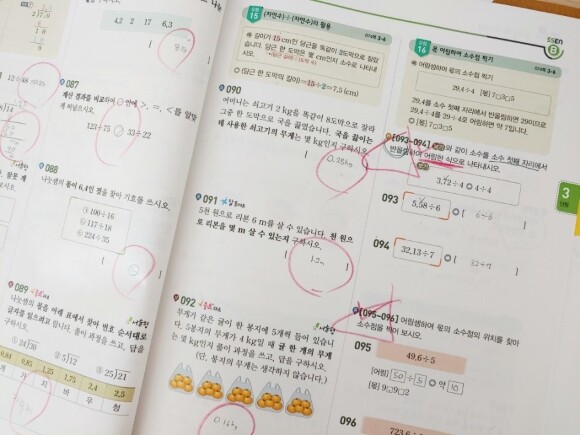 4.2 2 17 6.3
12÷48
087
계산 결과를 비교하여 ○안에 >, =, <를 알맞
게 써넣으시오.
123÷75 33÷22
088
나눗셈의 몫이 6.4인 것을 찾아 기호를 쓰시오.
㉠ 100÷16
㉡ 117÷18
㉢ 224÷35
089
나눗셈의 몫을 아래 표에서 찾아 번호 순서대로
글자를 쓰려고 합니다. 풀이 과정을 쓰고, 답을
구하시오.
서술형
① 24÷20 ② 5)12 ③ 25)21
0.84 0.85 1.25 1.75 2.4 2.5
가 지 바 우 청
유형
15 (자연수)÷(자연수)의 활용
길이가 15 cm인 당근을 똑같이 2도막으로 잘랐
습니다. 당근 한 도막은 몇 cm인지 소수로 나타내
시오.
(당근 한 도막의 길이)=15÷2=7.5 (cm)
090
어머니는 쇠고기 2 kg을 똑같이 8도막으로 잘라
그중 한 도막으로 국을 끓였습니다. 국을 끓이는
데 사용한 쇠고기의 무게는 몇 kg인지 구하시오.
0.25kg
091
5천 원으로 리본 6 m를 살 수 있습니다. 천 원으
로 리본을 몇 m 살 수 있는지 구하시오.
1.2m
092
서술형
무게가 같은 귤이 한 봉지에 5개씩 들어 있습니
다. 5봉지의 무게가 4 kg일 때 귤 한 개의 무게
는 몇 kg인지 풀이 과정을 쓰고, 답을 구하시오.
(단, 봉지의 무게는 생각하지 않습니다.)
0.16kg
SSEN
B
유형
16 몫 어림하여 소수점 찍기
어림셈하여 몫의 소수점 찍기
29.4÷4 [몫] 7□3□5
29.4를 소수 첫째 자리에서 반올림하면 29이므로
29.4÷4를 29÷4로 어림하면 약 7입니다.
[몫] 7□3□5
[093~094] 보기와 같이 소수를 소수 첫째 자리에서
반올림하여 어림한 식으로 나타내시오.
보기
3.72÷4 4÷4
093 5.58÷6 6÷6
094 32.13÷7 32÷7
[095~096] 어림셈하여 몫의 소수점의 위치를 찾아
소수점을 찍어 보시오.
095
49.6÷5
[어림] 50÷5 약 10
[몫] 9□9□2
096
723.6÷
3
단원